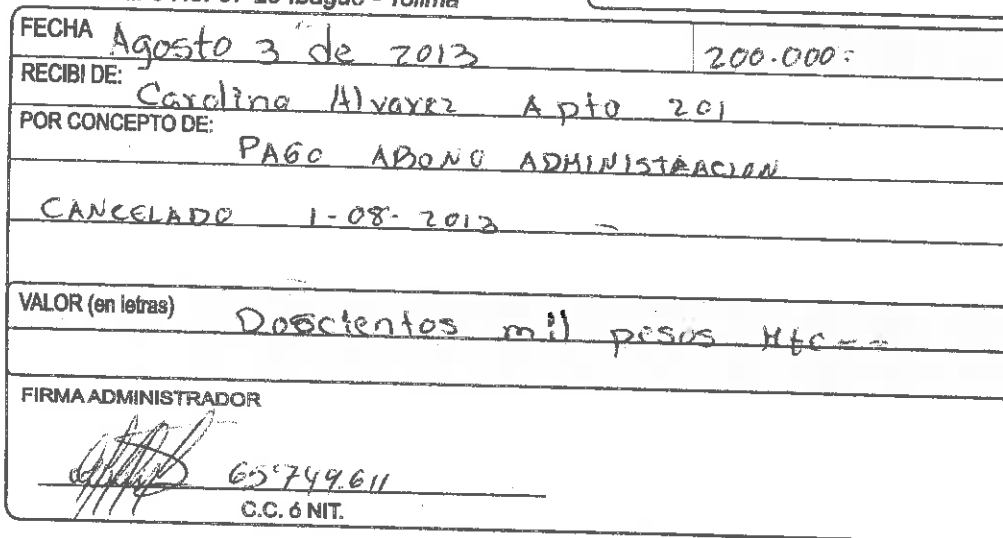 Ibagué - Tolima
FECHA Agosto 3 de 2013 200.000=
RECIBI DE: Carolina Alvarez Apto 201
POR CONCEPTO DE:
PAGO ABONO ADMINISTRACION
CANCELADO 1-08-2013
VALOR (en letras) Doscientos mil pesos Mtc--
FIRMA ADMINISTRADOR
65'749.611
C.C. ó NIT.